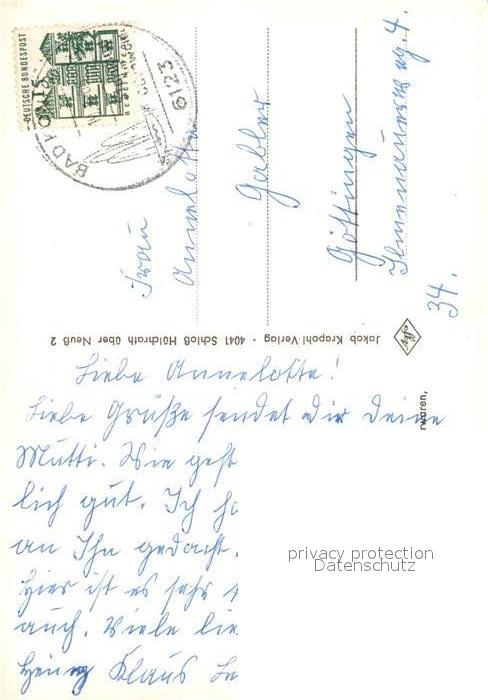 DEUTSCHE BUNDESPOST
BAD
6123
Frau
Annelotte
Gabler
Göttingen
34.
Jakob Krapohl-Verlag · 4041 Schloß Hülchrath über Neuß 2
Liebe Annelotte!
Liebe Grüße sendet dir deine
Mutti. Wie geht
lich gut. Ich ha
an Ihn gedacht.
Hier ist es sehr
auch. Viele lie
Klaus
privacy protection
Datenschutz